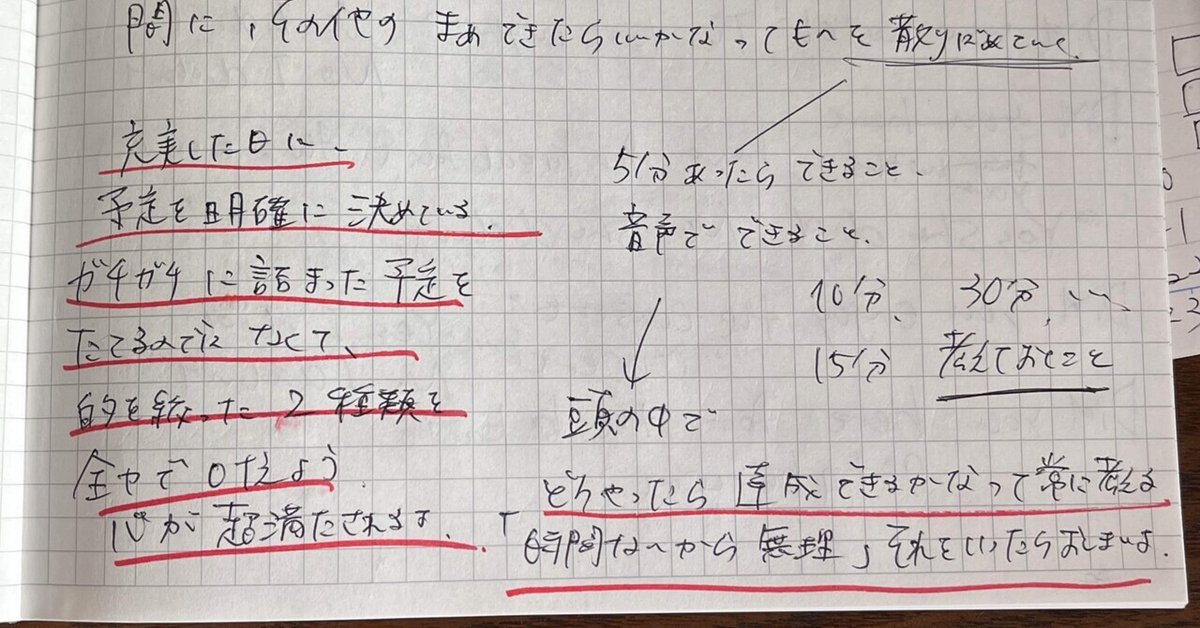 間に、その他の まあできたらいいかなってもへを 散りばめていく
充実した日に、
予定を明確に決めている.
ガチガチに詰まった予定を
たてるのではなくて、
的を絞った2種類を
全やで 叶えよう
心が超満たされるよ.
5分あったらできること.
音声で できること.
10分、 30分、...
15分 考えておくこと
頭の中で
どうやったら 達成できるかなって常に考える
「時間ないから無理」それをいったらおしまいよ.